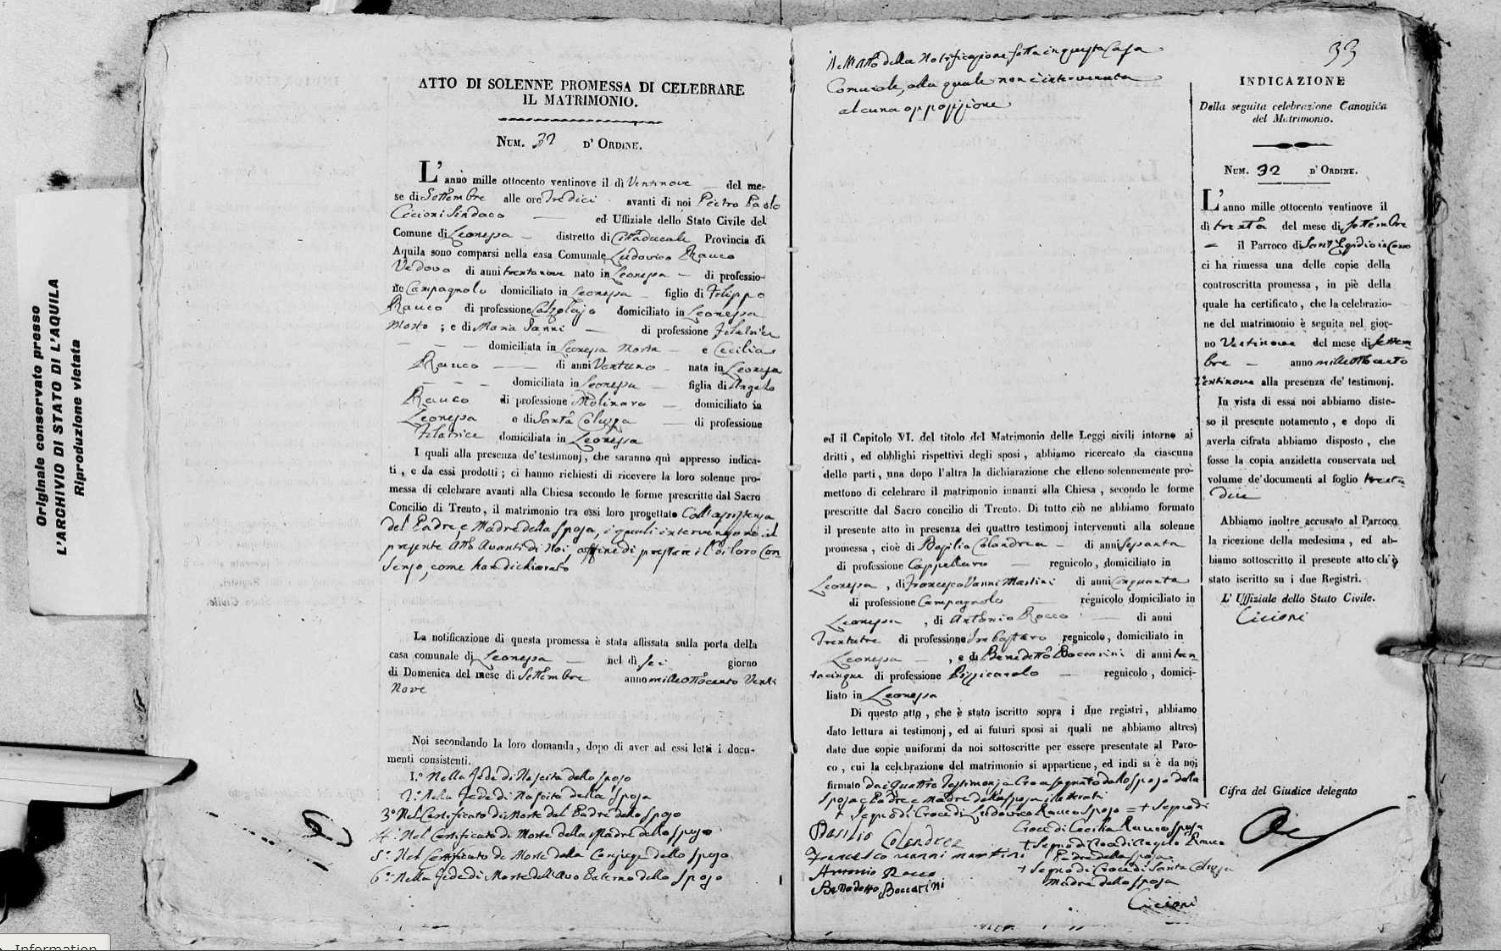 Originale conservato presso
L'ARCHIVIO DI STATO DI L'AQUILA
Riproduzione vietata
ATTO DI SOLENNE PROMESSA DI CELEBRARE
IL MATRIMONIO.
NUM. 32 D' ORDINE.
L' anno mille ottocento ventinove il dì Ventinove del me-
se di Settembre alle ore Tredici avanti di noi Pietro Paolo
Cicioni Sindaco ed Uffiziale dello Stato Civile del
Comune di Leonessa distretto di Cittaducale Provincia di
Aquila sono comparsi nella casa Comunale Ludovico Rauco
Vedovo di anni trentanove nato in Leonessa di professio-
ne Campagnolo domiciliato in Leonessa figlio di Filippo
Rauco di professione Calzolajo domiciliato in Leonessa
Morto ; e di Maria Ianni di professione Filatrice
domiciliata in Leonessa Morta e Cecilia
Rauco di anni Ventuno nata in Leonessa
domiciliata in Leonessa figlia di Angelo
Rauco di professione Molinaro domiciliato in
Leonessa e di Santa Coluzza di professione
Filatrice domiciliata in Leonessa
I quali alla presenza de' testimonj, che saranno quì appresso indica-
ti , e da essi prodotti ; ci hanno richiesti di ricevere la loro solenne pro-
messa di celebrare avanti alla Chiesa secondo le forme prescritte dal Sacro
Concilio di Trento, il matrimonio tra essi loro progettato Coll'assistenza
del Padre, e Madre della Sposa, i quali intervengono al
presente Atto Avanti di Noi, affine di prestare il di loro Con-
senso, come han dichiarato
La notificazione di questa promessa è stata affissata sulla porta della
casa comunale di Leonessa nel dì sei giorno
di Domenica del mese di Settembre anno milleottocento Venti
Nove
Noi secondando la loro domanda , dopo di aver ad essi letti i docu-
menti consistenti.
1.° Nella Fede di Nascita dello sposo
2.° Nella Fede di Nascita della sposa
3° Nel Certificato di Morte del Padre dello sposo
4.° Nel Certificato di Morte della Madre dello sposo
5.° Nel Certificato di Morte della Conjuge dello sposo
6.° Nella Fede di Morte dell'Avo Paterno dello sposo
Nell'Atto della Notificazione fatta in questa Casa
Comunale, alla quale non è intervenuta
alcuna opposizione
ed il Capitolo VI. del titolo del Matrimonio delle Leggi civili intorno ai
dritti , ed obblighi rispettivi degli sposi , abbiamo ricercato da ciascuna
delle parti , una dopo l'altra la dichiarazione che elleno solennemente pro-
mettono di celebrare il matrimonio innanzi alla Chiesa , secondo le forme
prescritte dal Sacro concilio di Trento. Di tutto ciò ne abbiamo formato
il presente atto in presenza dei quattro testimonj intervenuti alla solenne
promessa , cioè di Basilio Colandrea di anni sessanta
di professione Cappellaro regnicolo , domiciliato in
Leonessa , di Francesco Vanni Martini di anni Cinquanta
di professione Campagnolo regnicolo domiciliato in
Leonessa , di Antonio Rocco di anni
Trentatre di professione regnicolo , domiciliato in
Leonessa , e di Benedetto Boccarini di anni tren
tacinque di professione Pizzicarolo regnicolo , domici-
liato in Leonessa
Di questo atto , che è stato iscritto sopra i due registri, abbiamo
dato lettura ai testimonj , ed ai futuri sposi ai quali ne abbiamo altresì
date due copie uniformi da noi sottoscritte per essere presentate al Paro-
co , cui la celebrazione del matrimonio si appartiene, ed indi si è da noi
firmato dai quattro Testimonj, e Crocesegnato dallo sposo dalla
sposa e Padre e Madre della sposa illetterati
+ Segno di Croce di Ludovico Rauco sposo = + Segno di
Croce di Cecilia Rauco sposa
Basilio Colandrea
+ Segno di Croce di Angelo Rauco
Padre della sposa
Francesco vanni martini
+ Segno di Croce di Santa Coluzza
Madre della sposa
Antonio Rocco
Benedetto Boccarini
Cicioni
33
INDICAZIONE
Della seguita celebrazione Canonica
del Matrimonio.
NUM. 32 D' ORDINE.
L' anno mille ottocento ventinove il
dì trenta del mese di Settembre
il Parroco di Sant'Egidio
ci ha rimessa una delle copie della
controscritta promessa , in piè della
quale ha certificato , che la celebrazio-
ne del matrimonio è seguita nel gior-
no Ventinove del mese di Settem-
bre anno milleottocento
Ventinove alla presenza de' testimonj.
In vista di essa noi abbiamo diste-
so il presente notamento , e dopo di
averla cifrata abbiamo disposto , che
fosse la copia anzidetta conservata nel
volume de' documenti al foglio trenta
due
Abbiamo inoltre accusato al Parroco
la ricezione della medesima , ed ab-
biamo sottoscritto il presente atto ch'è
stato iscritto su i due Registri.
L' Uffiziale dello Stato Civile.
Cicioni
Cifra del Giudice delegato
Information